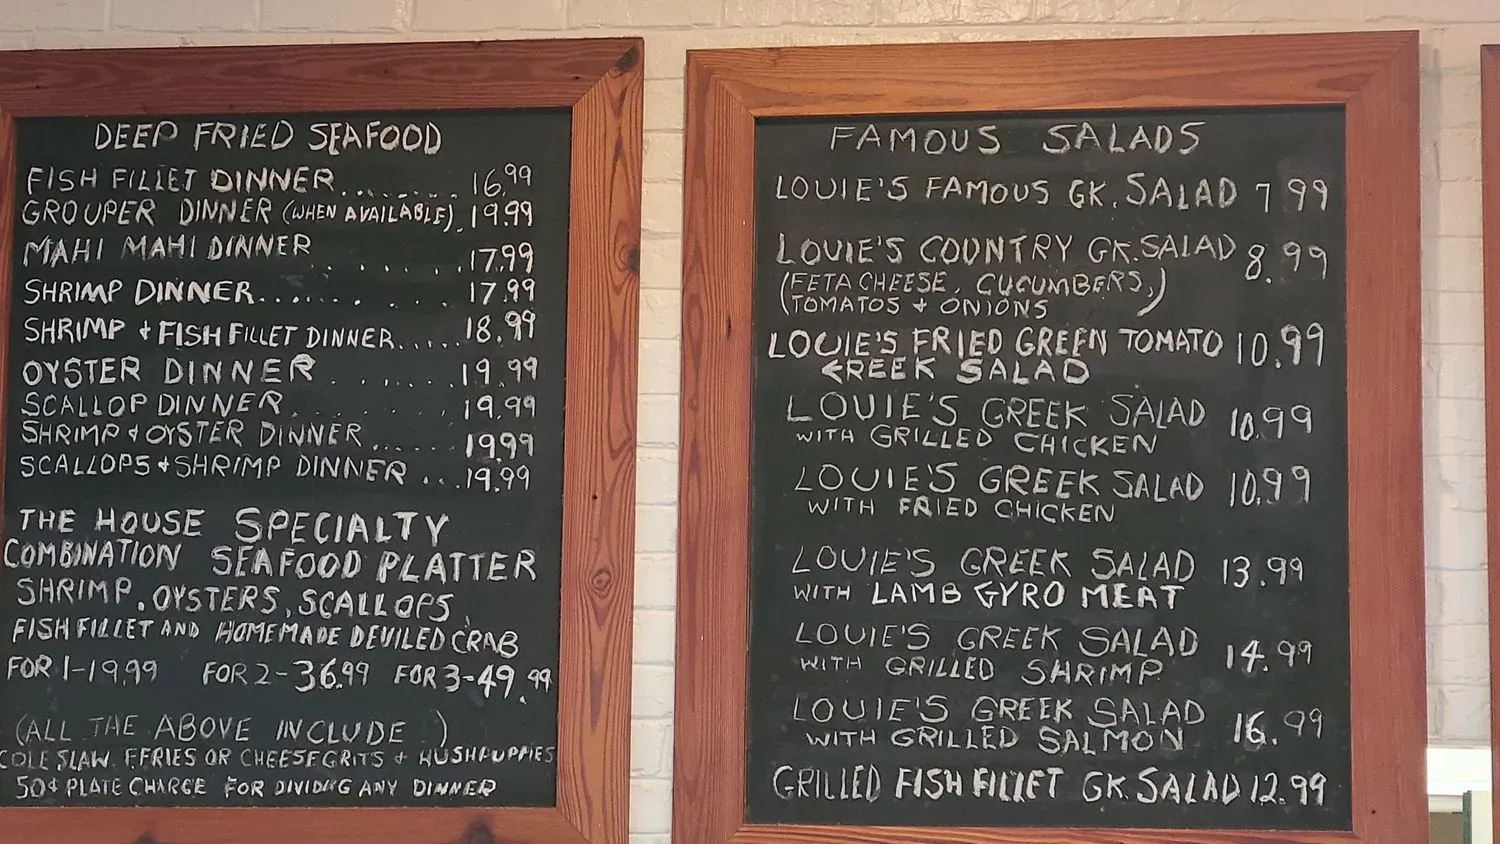 DEEP FRIED SEAFOOD
FISH FILLET DINNER........ 16.99
GROUPER DINNER (WHEN AVAILABLE). 19.99
MAHI MAHI DINNER ...... 17.99
SHRIMP DINNER......... 17.99
SHRIMP & FISH FILLET DINNER..... 18.99
OYSTER DINNER ....... 19.99
SCALLOP DINNER....... 19.99
SHRIMP & OYSTER DINNER ..... 19.99
SCALLOPS & SHRIMP DINNER ... 19.99
THE HOUSE SPECIALTY
COMBINATION SEAFOOD PLATTER
SHRIMP, OYSTERS, SCALLOPS,
FISH FILLET AND HOMEMADE DEVILED CRAB
FOR 1-19.99 FOR 2-36.99 FOR 3-49.99
(ALL THE ABOVE INCLUDE )
COLE SLAW. F.FRIES OR CHEESE GRITS & HUSHPUPPIES
50¢ PLATE CHARGE FOR DIVIDING ANY DINNER
FAMOUS SALADS
LOUIE'S FAMOUS GK. SALAD 7.99
LOUIE'S COUNTRY GK. SALAD 8.99
(FETA CHEESE, CUCUMBERS,)
(TOMATOS & ONIONS
LOUIE'S FRIED GREEN TOMATO 10.99
GREEK SALAD
LOUIE'S GREEK SALAD 10.99
WITH GRILLED CHICKEN
LOUIE'S GREEK SALAD 10.99
WITH FRIED CHICKEN
LOUIE'S GREEK SALAD 13.99
WITH LAMB GYRO MEAT
LOUIE'S GREEK SALAD 14.99
WITH GRILLED SHRIMP
LOUIE'S GREEK SALAD 16.99
WITH GRILLED SALMON
GRILLED FISH FILLET GK. SALAD 12.99